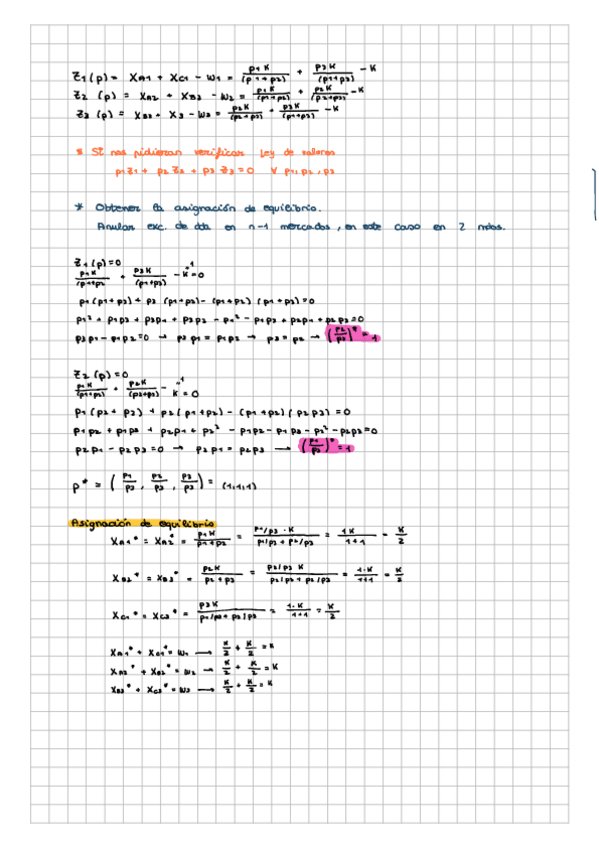 Z1(p) = XA1 + XC1 - W1 = p1K/(p1+p2) + p3K/(p1+p3) - K
Z2(p) = XA2 + XB2 - W2 = p1K/(p1+p2) + p2K/(p2+p3) - K
Z3(p) = XB3 + X3 - W3 = p2K/(p2+p3) + p3K/(p1+p3) - K
* Si nos pidieran verificar Ley de walras
p1Z1 + p2Z2 + p3Z3 = 0 ∀ p1, p2, p3
* Obtener la asignación de equilibrio.
Anular exc. de dda en n-1 mercados, en este caso en 2 mdos.
Z1(p) = 0
p1K/(p1+p2) + p3K/(p1+p3) - K = 0
p1(p1+p3) + p3(p1+p2) - (p1+p2)(p1+p3) = 0
p1² + p1p3 + p3p1 + p3p2 - p1² - p1p3 + p2p1 + p2p3 = 0
p3p1 - p1p2 = 0 → p3p1 = p1p2 → p3 = p2 → (p2/p3)* = 1
Z2(p) = 0
p1K/(p1+p2) + p2K/(p2+p3) - K = 0
p1(p2+p3) + p2(p1+p2) - (p1+p2)(p2p3) = 0
p1p2 + p1p3 + p2p1 + p2² - p1p2 - p1p3 - p2² - p2p3 = 0
p2p1 - p2p3 = 0 → p2p1 = p2p3 → (p1/p3)* = 1
p* = (p1/p3, p2/p3, p3/p3) = (1,1,1)
Asignación de equilibrio
XA1* = XA2* = p1K/(p1+p2) = (p1/p3 · K)/(p1/p3 + p2/p3) = 1K/(1+1) = K/2
XB2* = XB3* = p2K/(p2+p3) = (p2/p3 K)/(p2/p3 + p3/p3) = 1·K/(1+1) = K/2
XC1* = XC3* = p3K/(p1/p3 + p3/p3) = 1·K/(1+1) = K/2
XA1* + XC1* = W1 → K/2 + K/2 = K
XA2* + XB2* = W2 → K/2 + K/2 = K
XB3* + XC3* = W3 → K/2 + K/2 = K